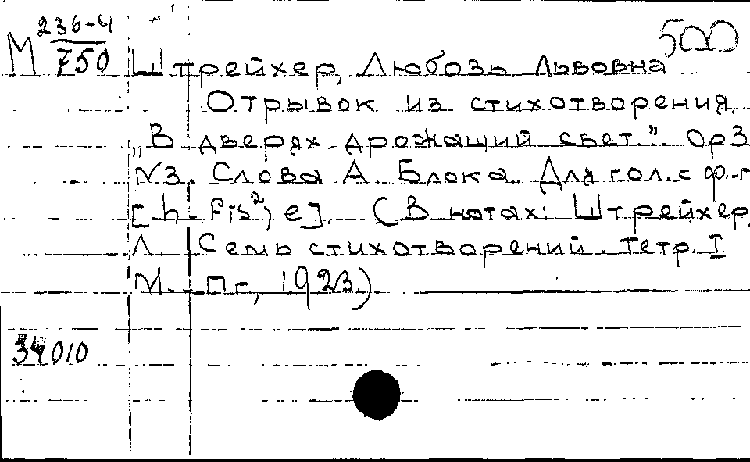 М 236-4
750
500
Штрейхер, Любовь Львовна
Отрывок из стихотворения
„В дверях дрожащий свет.” Ор3
№3. Слова А. Блока. Для гол. с ф-п
[h-fis², e]. (В нотах: Штрейхер,
Л. Семь стихотворений. Тетр. I
М.-Пг., 1923.)
34010